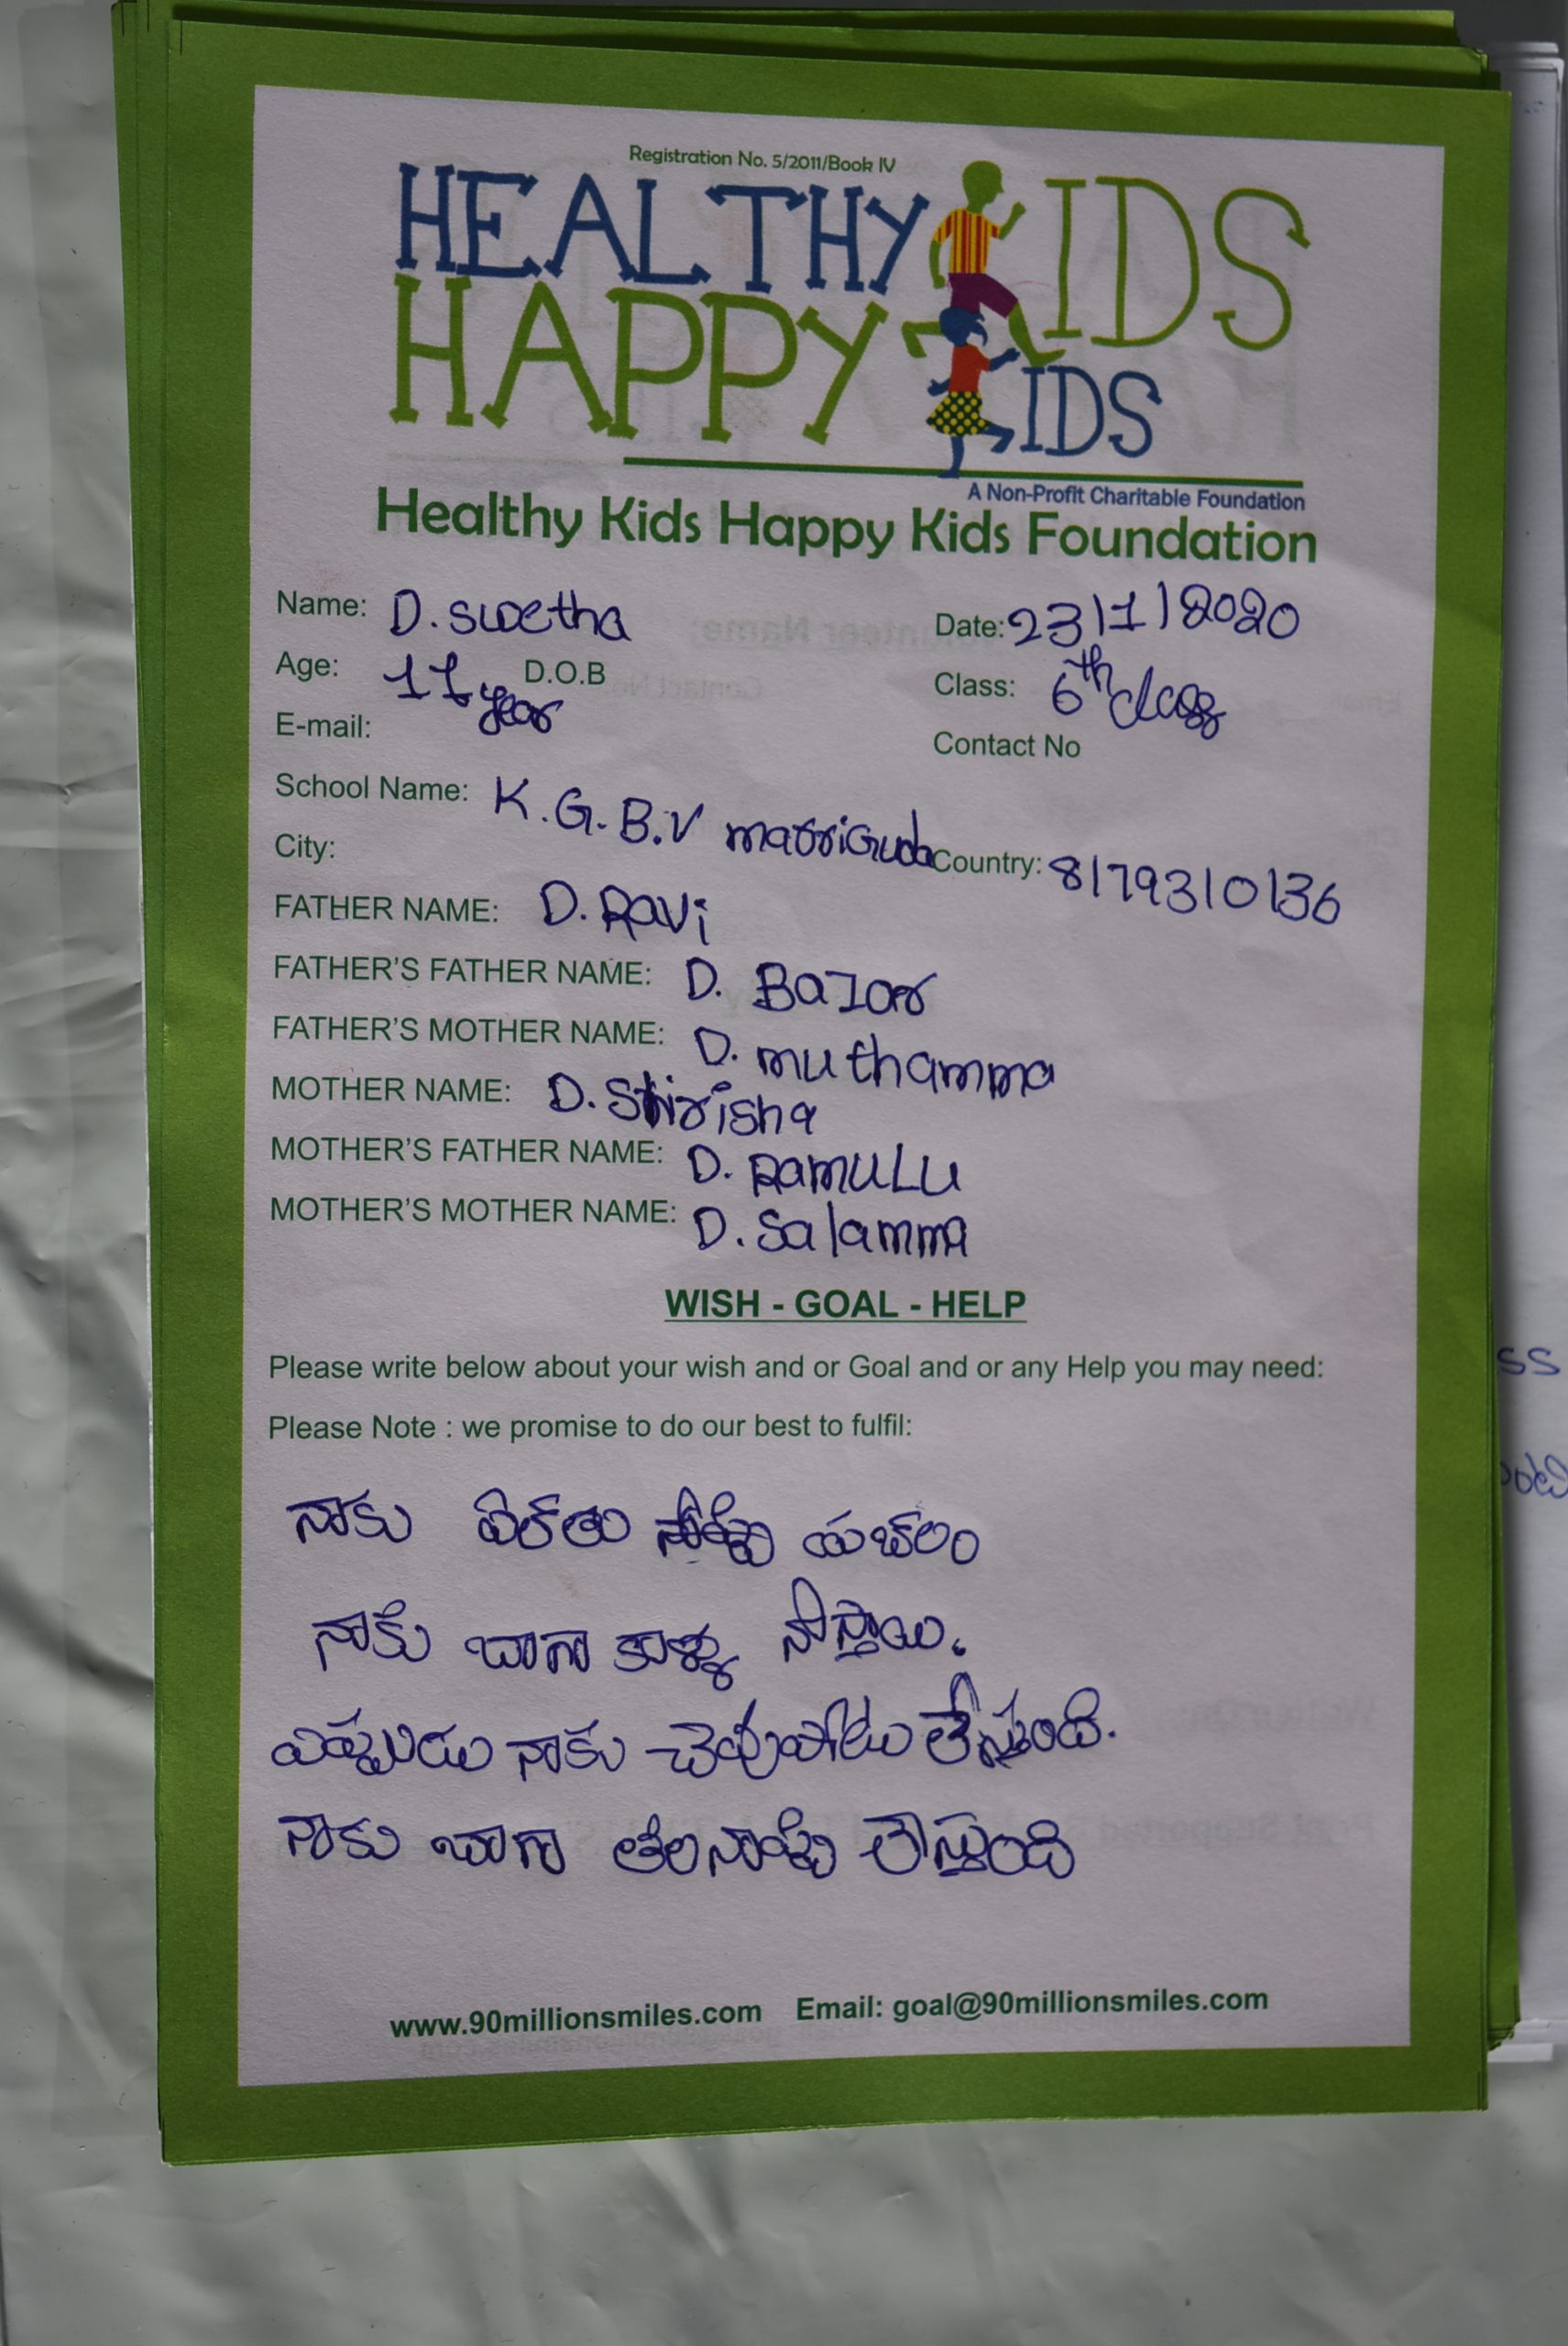 Registration No. 5/2011/Book IV
HEALTHY KIDS
HAPPY KIDS
A Non-Profit Charitable Foundation
Healthy Kids Happy Kids Foundation
Name: D. swetha Date: 23/1/2020
Age: 11 year D.O.B Class: 6th class
E-mail: Contact No
School Name: K.G.B.V marriGuda
City: Country: 8179310136
FATHER NAME: D. Ravi
FATHER'S FATHER NAME: D. BaJar
FATHER'S MOTHER NAME: D. muthamma
MOTHER NAME: D. Shirisha
MOTHER'S FATHER NAME: D. RamULU
MOTHER'S MOTHER NAME: D. Salamma
WISH - GOAL - HELP
Please write below about your wish and or Goal and or any Help you may need:
Please Note : we promise to do our best to fulfil:
నాకు
నాకు బాగా కాళ్ళు
నాకు
నాకు బాగా
www.90millionsmiles.com Email: goal@90millionsmiles.com
ss